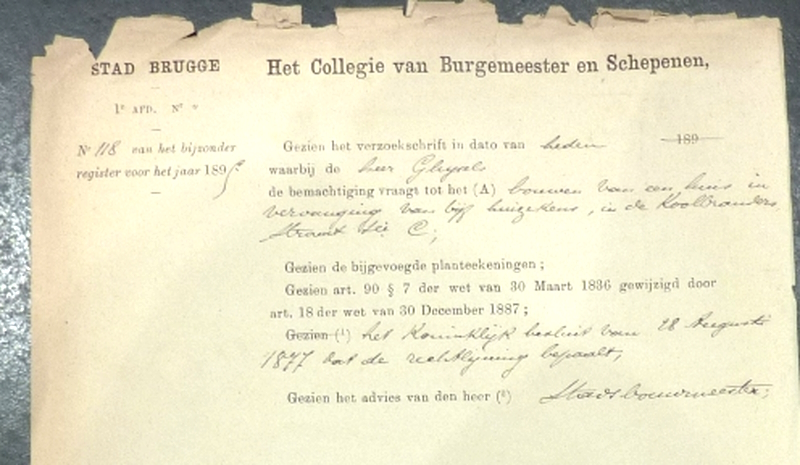 STAD BRUGGE
Het Collegie van Burgemeester en Schepenen,
1e AFD. No "
No 118 van het bijzonder
register voor het jaar 1895
Gezien het verzoekschrift in dato van heden 189
waarbij de heer Ghysels
de bemachtiging vraagt tot het (A) bouwen van een huis in
vervanging van vijf huizekens, in de Koolbranders
straat C;
Gezien de bijgevoegde planteekeningen;
Gezien art. 90 § 7 der wet van 30 Maart 1836 gewijzigd door
art. 18 der wet van 30 December 1887;
Gezien (1) het Koninklijk besluit van 28 Augusti
1877 dat de rechtlijning bepaalt,
Gezien het advies van den heer (2) Stadsbouwmeester;